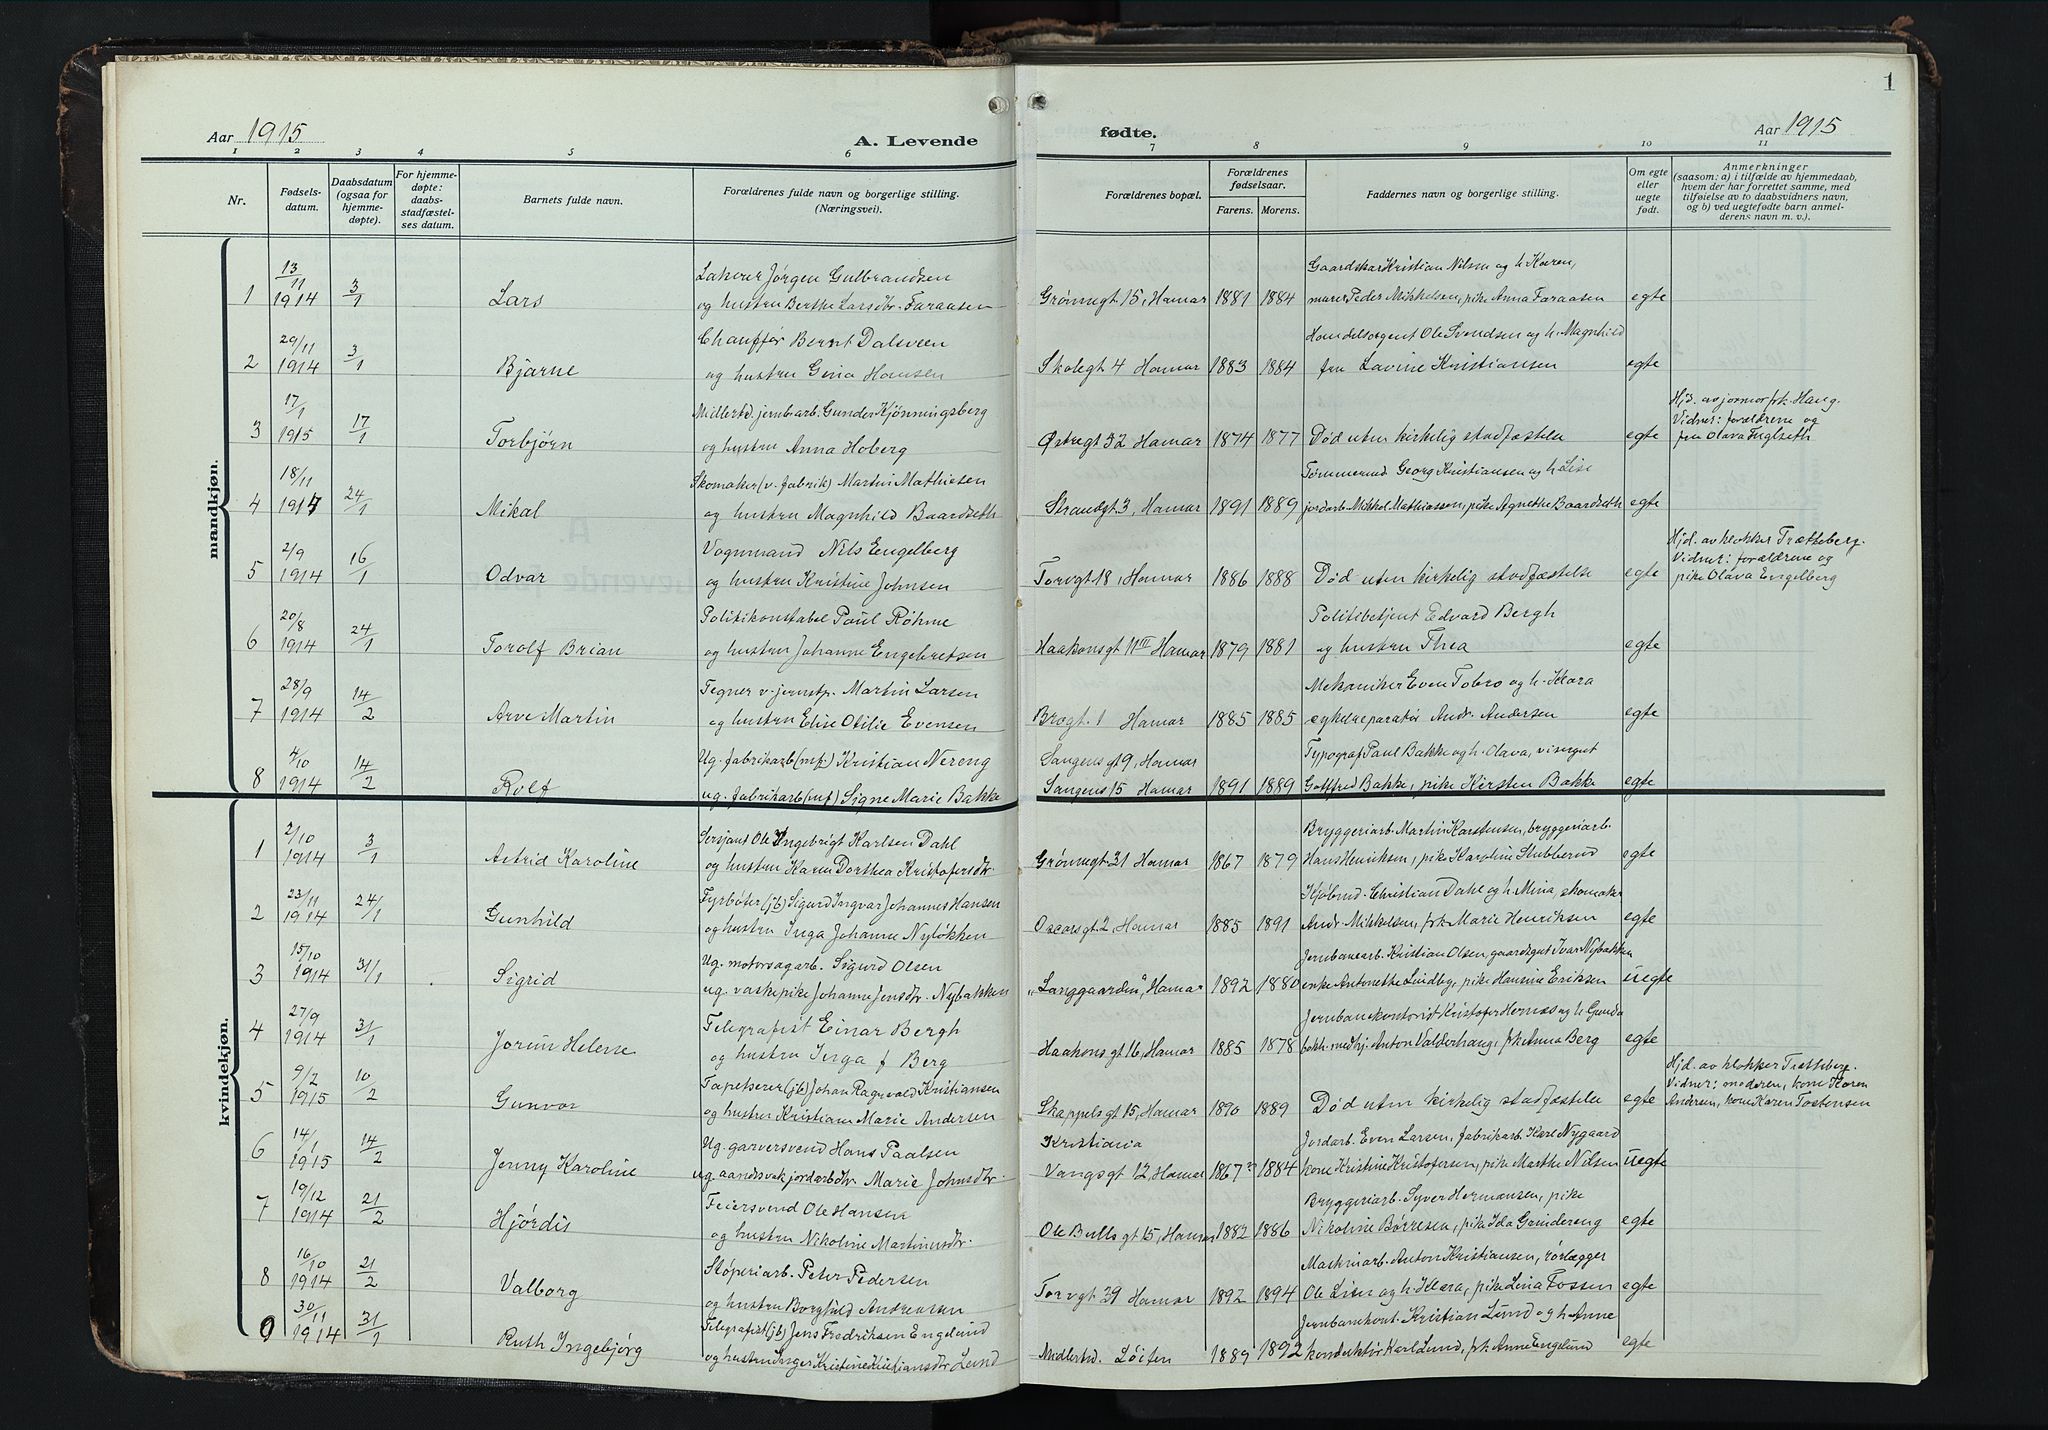 1
Aar 1915
A. Levende
fødte.
Aar 1915
1 2 3 4 5 6 7 8 9 10 11
Nr.
Fødsels-
datum.
Daabsdatum
(ogsaa for
hjemme-
døpte).
For hjemme-
døpte:
daabs-
stadfæstel-
ses datum.
Barnets fulde navn.
Forældrenes fulde navn og borgerlige stilling.
(Næringsvei).
Forældrenes bopæl.
Forældrenes
fødselsaar.
Farens. Morens.
Faddernes navn og borgerlige stilling.
Om egte
eller
uegte
født.
Anmerkninger
(saasom: a) i tilfælde av hjemmedaab,
hvem der har forrettet samme, med
tilføielse av to daabsvidners navn,
og b) ved uegtefødte barn anmel-
derens navn m. v.).
mandkjøn.
13/11 Lakerer Jørgen Gulbrandsen Gaardskar Kristian Nilsen og h. Karen,
1 1914 3/1 Lars og hustru Berthe Larsdtr. Faraasen Grønnegt 15, Hamar 1881 1884 murer Peder Mikkelsen, pike Anna Faraasen egte
29/11 Chauffør Bernt Dalsveen Handelsagent Ole Svendsen og h. Magnhild
2 1914 3/1 Bjarne og hustru Gina Hansen Skolegt 4 Hamar 1883 1884 fru Lavine Kristiansen egte
17/1 Midlertd. jernbarb. Gunder Kjønningsberg Hjd. av jormor frk. Haug.
Vidner: forældrene og
3 1915 17/1 Torbjørn og hustru Anna Hoberg Østregt 32 Hamar 1874 1877 Død uten kirkelig stadfæstelse egte fru Olava Fuglseth
18/11 Skomaker (v. fabrik) Martin Mathiesen Tømmermd Georg Kristiansen og h. Lise
4 1914 24/1 Mikal og hustru Magnhild Baardseth Strandgt 3, Hamar 1891 1889 jordarb. Mikkel Mathiassen, pike Agnethe Baardseth egte
2/9 Vognmand Nils Engelberg Hjd. av klokker Trætteberg.
Vidner: forældrene og
5 1914 16/1 Odvar og hustru Kristine Johnsen Torvgt 18, Hamar 1886 1888 Død uten kirkelig stadfæstelse egte pike Olava Engelberg
20/8 Politikonstabel Paul Röhme Politibetjent Edvard Bergh
6 1914 24/1 Torolf Brian og hustru Johanne Engebretsen Haakonsgt 11 III Hamar 1879 1881 og hustru Thea egte
28/9 Tegner v. jernstp. Martin Larsen Mekaniker Even Tobro og h. Klara
7 1914 14/2 Arve Martin og hustru Elise Otilie Evensen Brogt. 1 Hamar 1885 1885 cykelreparatør Andr. Andersen egte
4/10 Ug. fabrikarb (mf.) Kristian Nereng Sangens gt 9, Hamar Typograf Paul Bakke og h. Olava, visergut
8 1914 14/2 Rolf ug. fabrikarb (mf) Signe Marie Bakke Sangens 15 Hamar 1891 1889 Gottfred Bakke, pike Kirsten Bakke egte
kvindekjøn.
2/10 Sersjant Ole Ingebrigt Karlsen Dahl Bryggeriarb. Martin Karstensen, bryggeriarb.
1 1914 3/1 Astrid Karoline og hustru Karen Dorthea Kristofersdtr. Grønnegt 31 Hamar 1867 1879 Hans Henriksen, pike Karoline Stubberud egte
23/11 Fyrbøter (jb) Sigurd Ingvar Johannes Hansen Kjøbmd. Christian Dahl og h. Mina, skomaker
2 1914 24/1 Gunhild og hustru Inga Johanne Nyløkken Oscarsgt 2, Hamar 1885 1891 Andr. Mikkelsen, frk Marie Henriksen egte
15/10 Ug. motorsagarb. Sigurd Olsen Jernbanearb. Kristian Olsen, gaardsgut Ivar Nybakken
3 1914 31/1 Sigrid ug. vaskepike Johanne Jensdtr. Nybakken "Langgaarden", Hamar 1892 1880 enke Antonette Lindby, pike Hansine Eriksen uegte
27/9 Telegrafist Einar Bergh Jernbanekontorist Kristofer Hernæs og h. Gunda
4 1914 31/1 Jorun Helene og hustru Inga f. Berg Haakons gt 16, Hamar 1885 1878 bokh. medhj. Anton Valderhaug, frk Anna Berg egte
9/2 Tapetserer (jb) Johan Ragnvald Kristiansen Hjd. av klokker Trætteberg.
Vidner: moderen, kone Karen
5 1915 10/2 Gunvor og hustru Kristiane Marie Andersen Skappelsgt 15, Hamar 1890 1889 Død uten kirkelig stadfæstelse egte Andersen, kone Karen Tostensen
14/1 Ug. garversvend Hans Paalsen Kristiania Jordarb. Even Larsen, fabrikarb. Karl Nygaard
6 1915 14/2 Jenny Karoline ug. aandsvak jordarbdtr. Marie Johnsdtr. Vangsgt 12, Hamar 1867 ?? 1884 kone Kristine Kristofersen, pike Marthe Nilsen uegte
19/12 Feiersvend Ole Hansen Bryggeriarb. Syver Hermansen, pike
7 1914 21/2 Hjørdis og hustru Nikoline Martinusdtr. Ole Bulls gt 15, Hamar 1882 1886 Nikoline Børresen, pik Ida Grindereng egte
16/10 Støperiarb. Peter Pedersen Maskinarb. Anton Kristiansen, rørlægger
8 1914 21/2 Valborg og hustru Borghild Andreasen Torvgt 39 Hamar 1892 1894 Ole Lien og h. Klara, pike Lina Fossen egte
30/11 Telegrafist (jb) Jens Fredriksen Engelund Jernbanekont. Kristian Lund og h. Anne
9 1914 31/1 Ruth Ingebjørg og hustru Inger Kristine Kristiansdtr Lund Midlertid. Løiten 1889 1892 konduktør Karl Lund, frk Anne Engelund egte